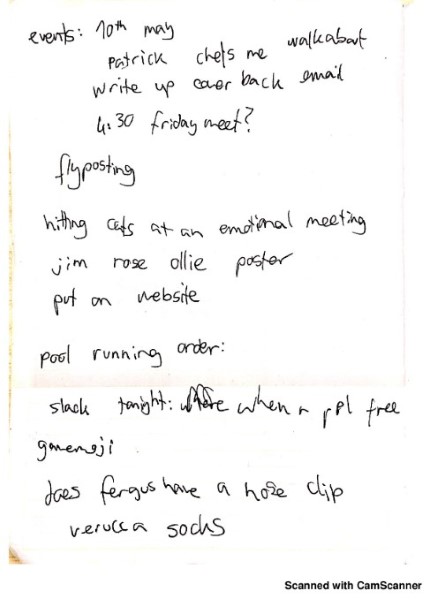 events: 10th may
patrick chefs me walkabout
write up cover back email
4:30 friday meet?
flyposting
hitting cats at an emotional meeting
jim rose ollie poster
put on website
pool running order:
slack tonight: when r ppl free
gamemoji
does fergus have a nose clip
verucca socks
Scanned with CamScanner